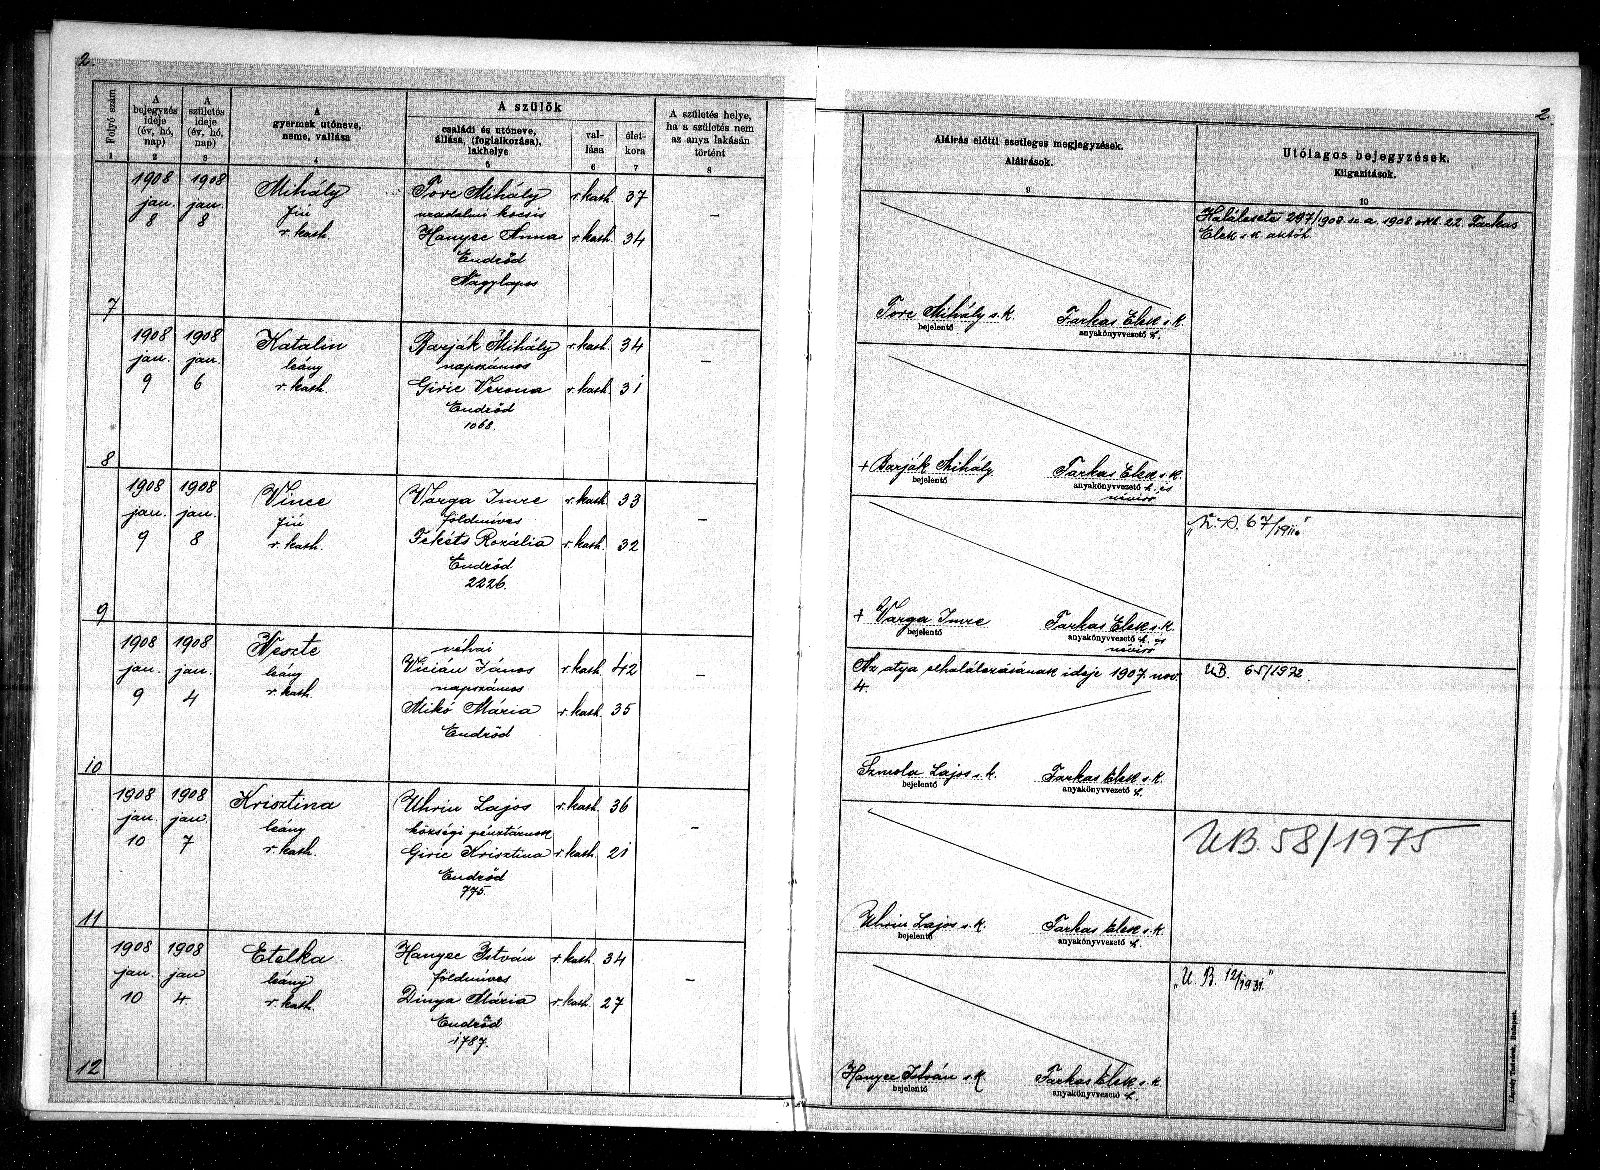 2.
2.
Folyó szám
A bejegyzés ideje (év, hó, nap)
A születés ideje (év, hó, nap)
A gyermek utóneve, neme, vallása
A szülők
családi és utóneve, állása, (foglalkozása), lakhelye
vallása
életkora
A születés helye, ha a születés nem az anya lakásán történt
Aláírás előtti esetleges megjegyzések.
Aláírások.
Utólagos bejegyzések.
Kiigazítások.
1 2 3 4 5 6 7 8 9 10
7
1908 jan. 8
1908 jan. 8
Mihály
fiú
r. kath.
Mihály r. kath. 37
uradalmi kocsis
Hanyec Anna r. kath. 34
Endrőd
Nagylapos
—
Mihály s. k.
bejelentő
Farkas Elek s. k.
anyakönyvvezető h.
297/1908 1908 okt. 22. Farkas
Elek s. k.
8
1908 jan. 9
1908 jan. 6
Katalin
leány
r. kath.
Barják Mihály r. kath. 34
napszámos
Giric Verona r. kath. 31
Endrőd
1068.
—
+ Barják Mihály
bejelentő
Farkas Elek s. k.
anyakönyvvezető h. és
névíró
9
1908 jan. 9
1908 jan. 8
Vince
fiú
r. kath.
Varga Imre r. kath. 33
földmíves
Rozália r. kath. 32
Endrőd
2226.
—
+ Varga Imre
bejelentő
Farkas Elek s. k.
anyakönyvvezető h. és
névíró
67/1911
10
1908 jan. 9
1908 jan. 4
leány
r. kath.
néhai
János r. kath. 42
napszámos
Mikó Mária r. kath. 35
Endrőd
—
Az atya elhalálozásának ideje 1907. nov.
4.
Lajos s. k.
bejelentő
Farkas Elek s. k.
anyakönyvvezető h.
UB. 65/1972.
11
1908 jan. 10
1908 jan. 7
Krisztina
leány
r. kath.
Uhrin Lajos r. kath. 36
községi pénztárnok
Giric Krisztina r. kath. 21
Endrőd
775.
—
Uhrin Lajos s. k.
bejelentő
Farkas Elek s. k.
anyakönyvvezető h.
UB. 58/1975
12
1908 jan. 10
1908 jan 4
Etelka
leány
r. kath.
Hanyec István r. kath. 34
földmíves
Dinya Mária r. kath. 27
Endrőd
1787.
—
Hanyec István s. k.
bejelentő
Farkas Elek s. k.
anyakönyvvezető h.
„U. B. 12/1931."